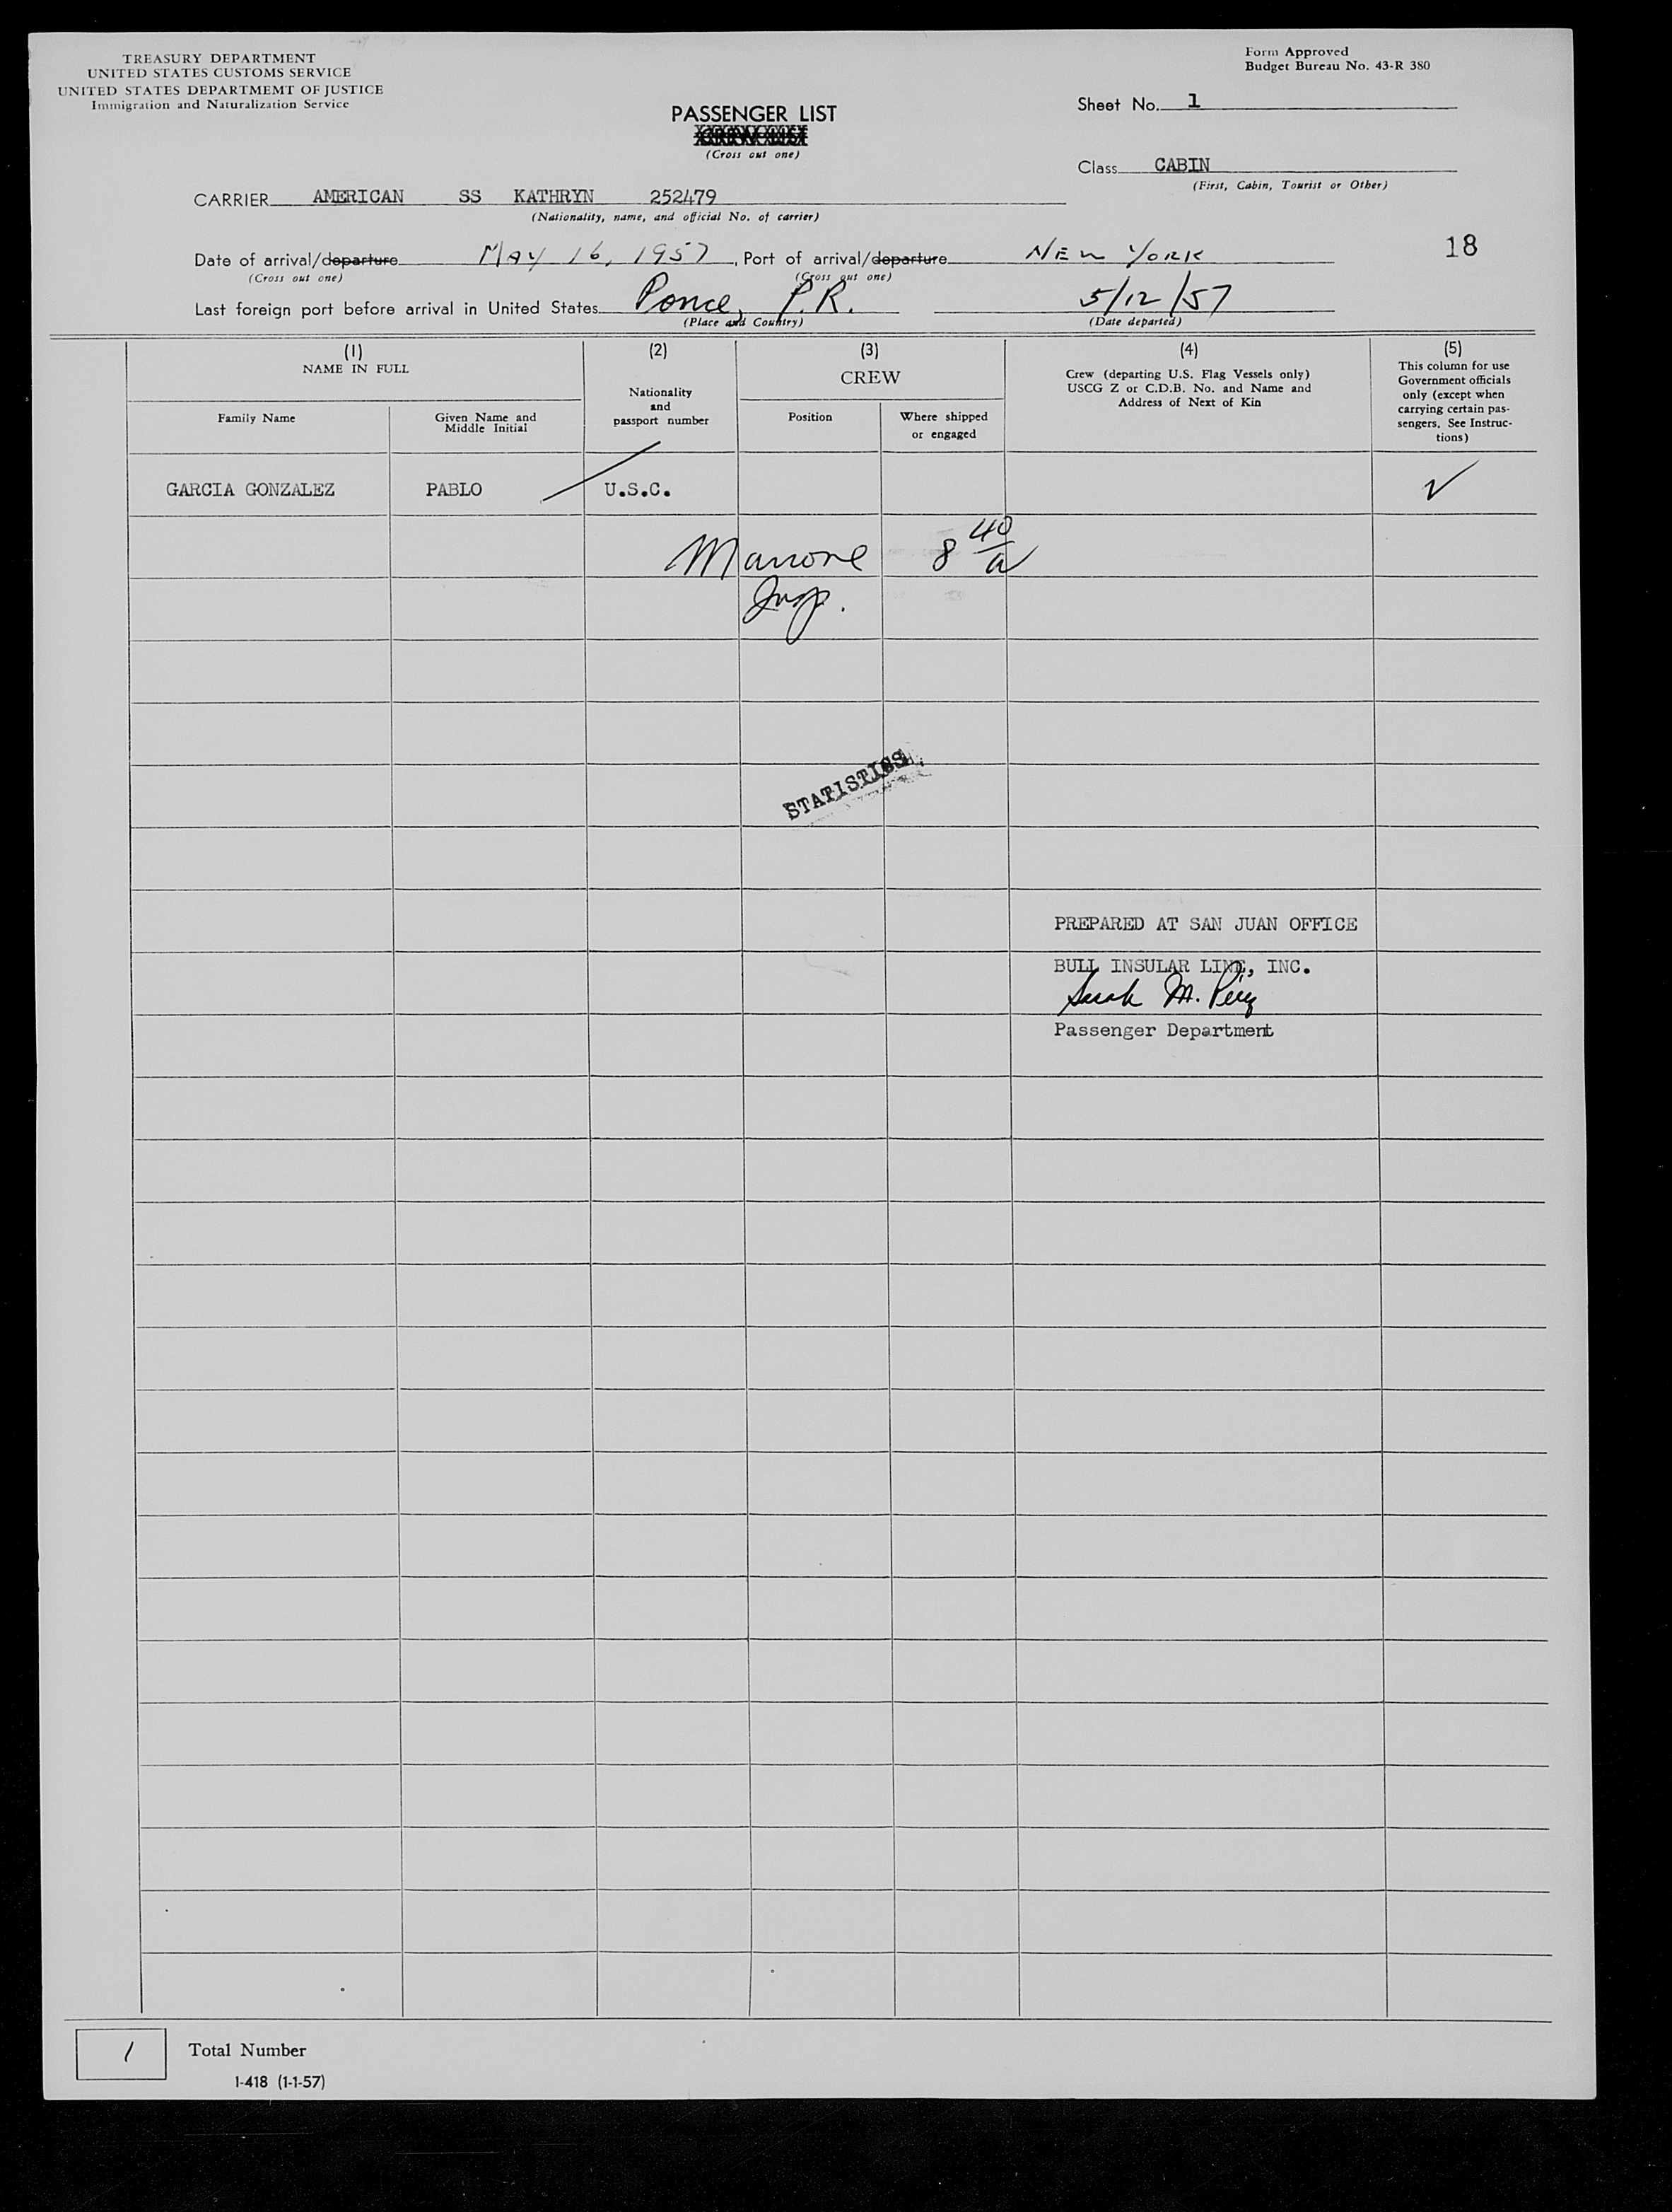 TREASURY DEPARTMENT
UNITED STATES CUSTOMS SERVICE
UNITED STATES DEPARTMEMT OF JUSTICE
Immigration and Naturalization Service
Form Approved
Budget Bureau No. 43-R 380
PASSENGER LIST
(Cross out one)
Sheet No. 1
Class CABIN
(First, Cabin, Tourist or Other)
CARRIER AMERICAN SS KATHRYN 252479
(Nationality, name, and official No. of carrier)
18
Date of arrival/departure MAY 16, 1957, Port of arrival/departure NEW YORK
(Cross out one) (Cross out one)
Last foreign port before arrival in United States Ponce, P.R. 5/12/57
(Place and Country) (Date departed)
(1) (2) (3) (4) (5)
NAME IN FULL
Family Name
Given Name and
Middle Initial
Nationality
and
passport number
CREW
Position
Where shipped
or engaged
Crew (departing U.S. Flag Vessels only)
USCG Z or C.D.B. No. and Name and
Address of Next of Kin
This column for use
Government officials
only (except when
carrying certain pas-
sengers. See Instruc-
tions)
GARCIA GONZALEZ PABLO U.S.C. ✓
Marrone 8 40/a
Insp.
STATISTICS
PREPARED AT SAN JUAN OFFICE
BULL INSULAR LINE, INC.
Sarah M. Perez
Passenger Department
1 Total Number
I-418 (1-1-57)